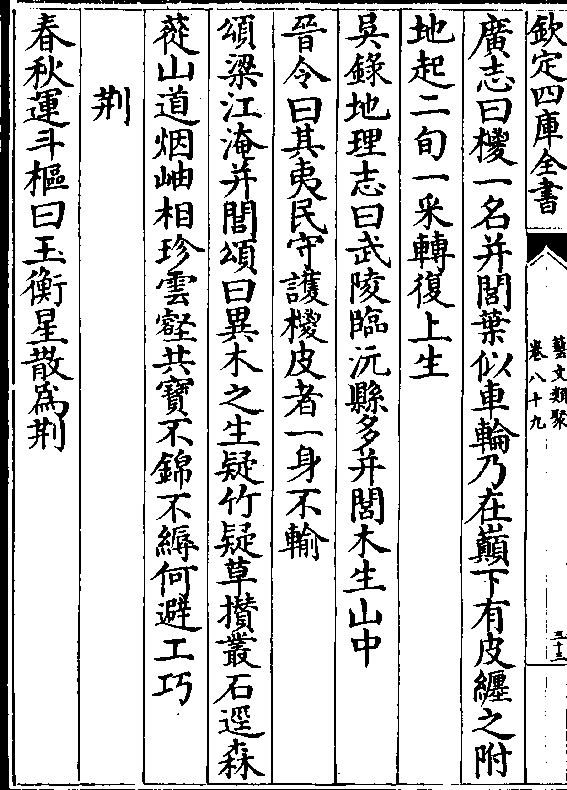 欽定四庫全書
藝文類聚
卷八十九
三十三
廣志曰㯶一名并閭葉似車輪乃在巔下有皮纏之附
地起二旬一采轉復上生
吳錄地理志曰武陵臨沅縣多并閭木生山中
晉令曰其夷民守護㯶皮者一身不輸
頌梁江淹并閭頌曰異木之生疑竹疑草攢叢石逕森
蓯山道烟岫相珍雲壑共寶不錦不縟何避工巧
荆
春秋運斗樞曰玉衡星散為荆